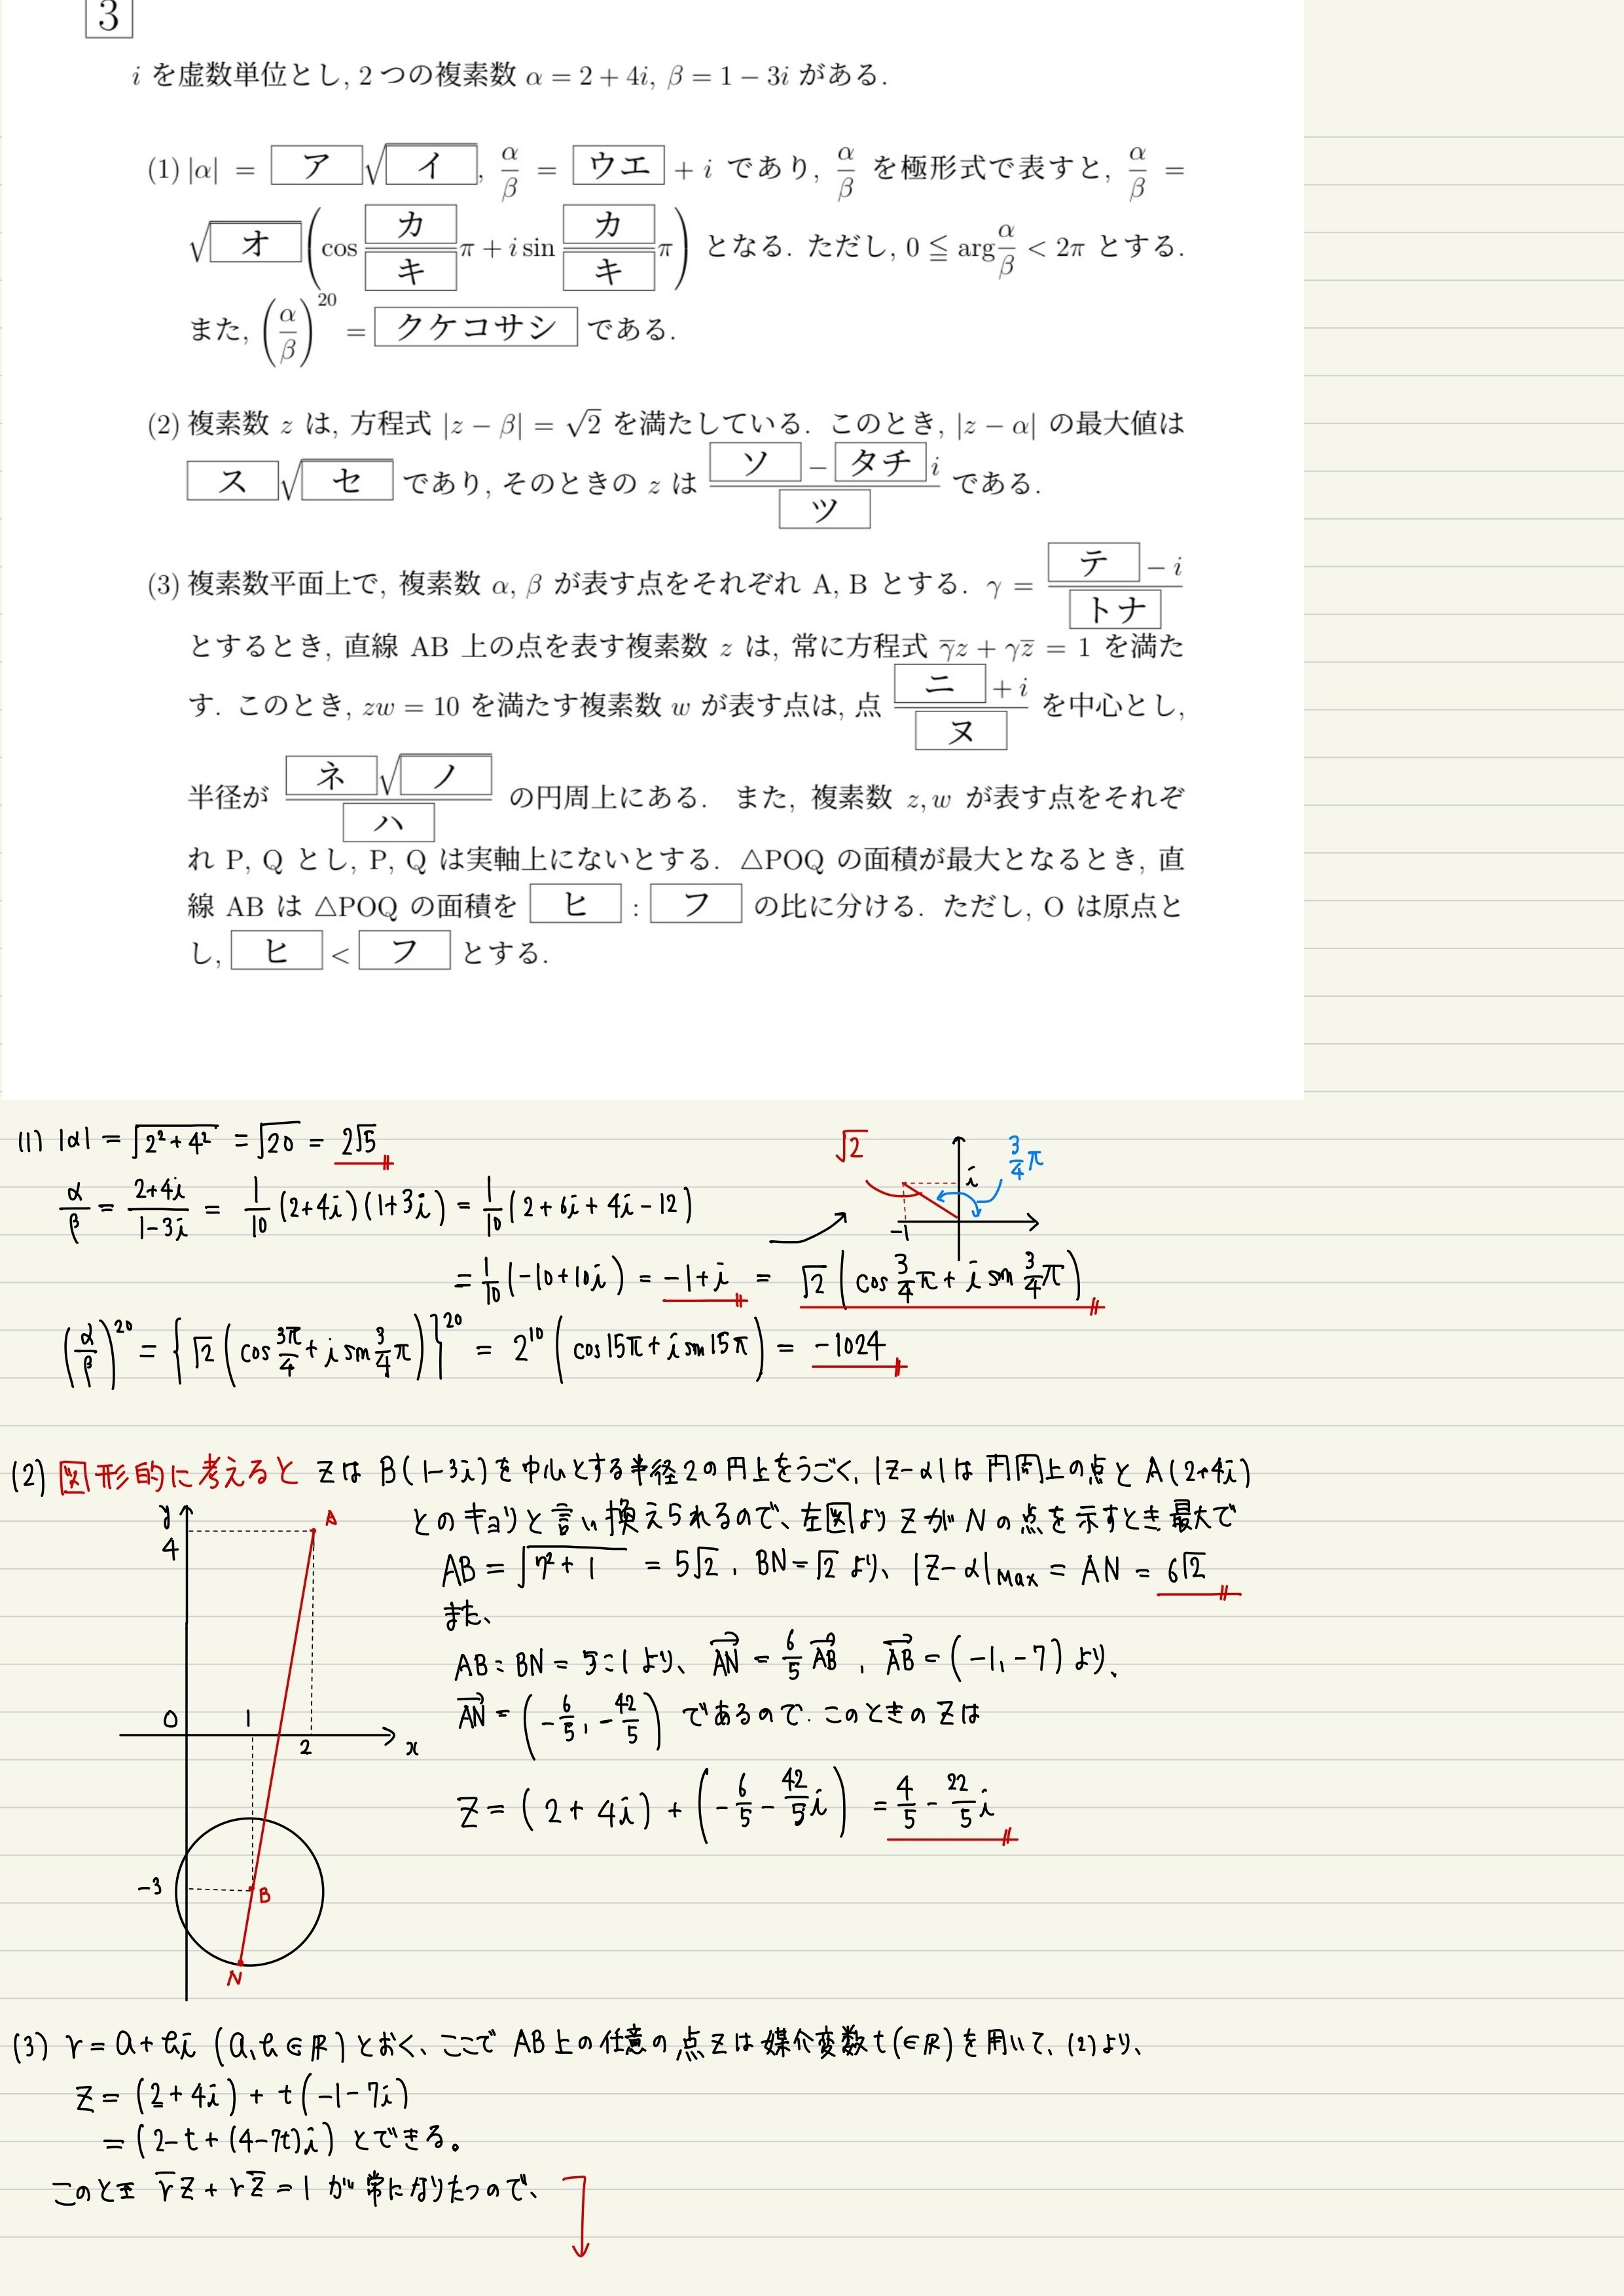 3
i を虚数単位とし, 2 つの複素数 α = 2 + 4i, β = 1 − 3i がある.
(1) |α| = ア√イ, α/β = ウエ + i であり, α/β を極形式で表すと, α/β =
√オ (cos カ/キ π + i sin カ/キ π) となる. ただし, 0 ≦ arg α/β < 2π とする.
また, (α/β)^20 = クケコサシ である.
(2) 複素数 z は, 方程式 |z − β| = √2 を満たしている. このとき, |z − α| の最大値は
ス√セ であり, そのときの z は (ソ − タチ i)/ツ である.
(3) 複素数平面上で, 複素数 α, β が表す点をそれぞれ A, B とする. γ = (テ − i)/トナ
とするとき, 直線 AB 上の点を表す複素数 z は, 常に方程式 γ̅z + γz̅ = 1 を満た
す. このとき, zw = 10 を満たす複素数 w が表す点は, 点 (ニ + i)/ヌ を中心とし,
半径が ネ√ノ/ハ の円周上にある. また, 複素数 z, w が表す点をそれぞ
れ P, Q とし, P, Q は実軸上にないとする. △POQ の面積が最大となるとき, 直
線 AB は △POQ の面積を ヒ : フ の比に分ける. ただし, O は原点と
し, ヒ < フ とする.
(1) |α| = √(2²+4²) = √20 = 2√5
α/β = (2+4i)/(1−3i) = 1/10 (2+4i)(1+3i) = 1/10 (2+6i+4i−12)
= 1/10 (−10+10i) = −1+i = √2 (cos 3/4 π + i sin 3/4 π)
√2
3/4 π
i
−1
(α/β)^20 = {√2 (cos 3π/4 + i sin 3/4 π)}^20 = 2^10 (cos15π + i sin15π) = −1024
(2) 図形的に考えると zは B(1−3i)を中心とする半径2の円上をうごく, |z−α|は円周上の点と A(2+4i)
とのキョリと言い換えられるので、左図より zがNの点を示すとき最大で
AB = √(7²+1) = 5√2, BN=√2 より、 |z−α|Max = AN = 6√2
また、
AB:BN = 5:1 より、 AN→ = 6/5 AB→, AB→ = (−1, −7) より、
AN→ = (−6/5, −42/5) であるので. このときの zは
z = (2+4i) + (−6/5 − 42/5 i) = 4/5 − 22/5 i
y
4
A
0
1
2
x
−3
B
N
(3) γ = a+bi (a, b ∈ R) とおく、ここで AB上の任意の点zは媒介変数t(∈R)を用いて、(2)より、
z = (2+4i) + t(−1−7i)
= (2−t+(4−7t)i) とできる。
このとき γ̅z + γz̅ = 1 が常になりたつので、